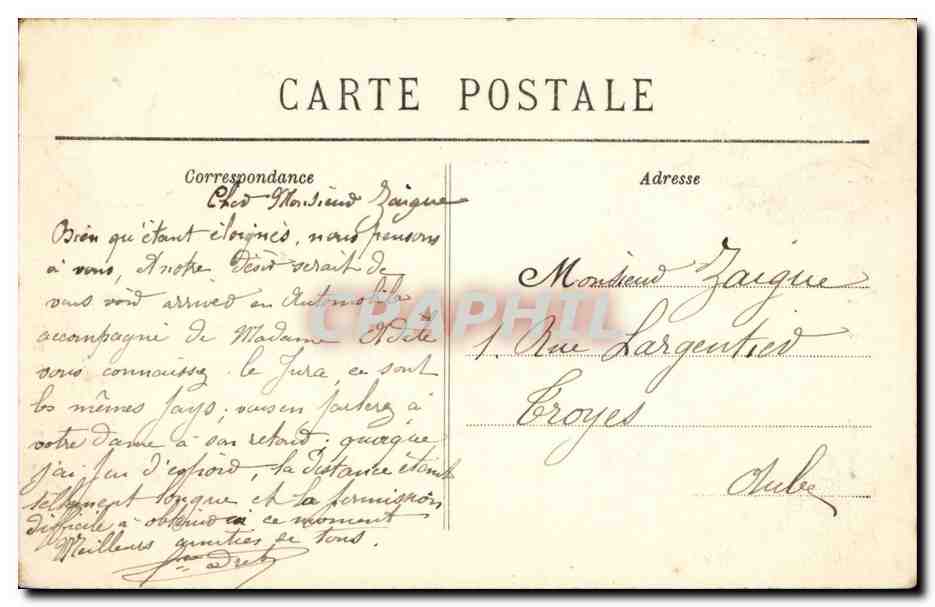 CARTE POSTALE
Correspondance
Adresse
Cher Monsieur Zaigue
Bien qu'étant éloignés, nous pensons
à vous, Notre désir serait de
vous voir arriver en Automobile
accompagné de Madame
vous connaissez le Jura, ce sont
les mêmes pays, vous en parlerez à
votre dame à son retour. quoique
j'ai peu d'espoir, la distance étant
tellement longue et la permission
difficile à obtenir en ce moment
Meilleurs amitiés de tous.
Monsieur Zaigue
1, Rue Largentier
Troyes
Aube
CPAPHIL